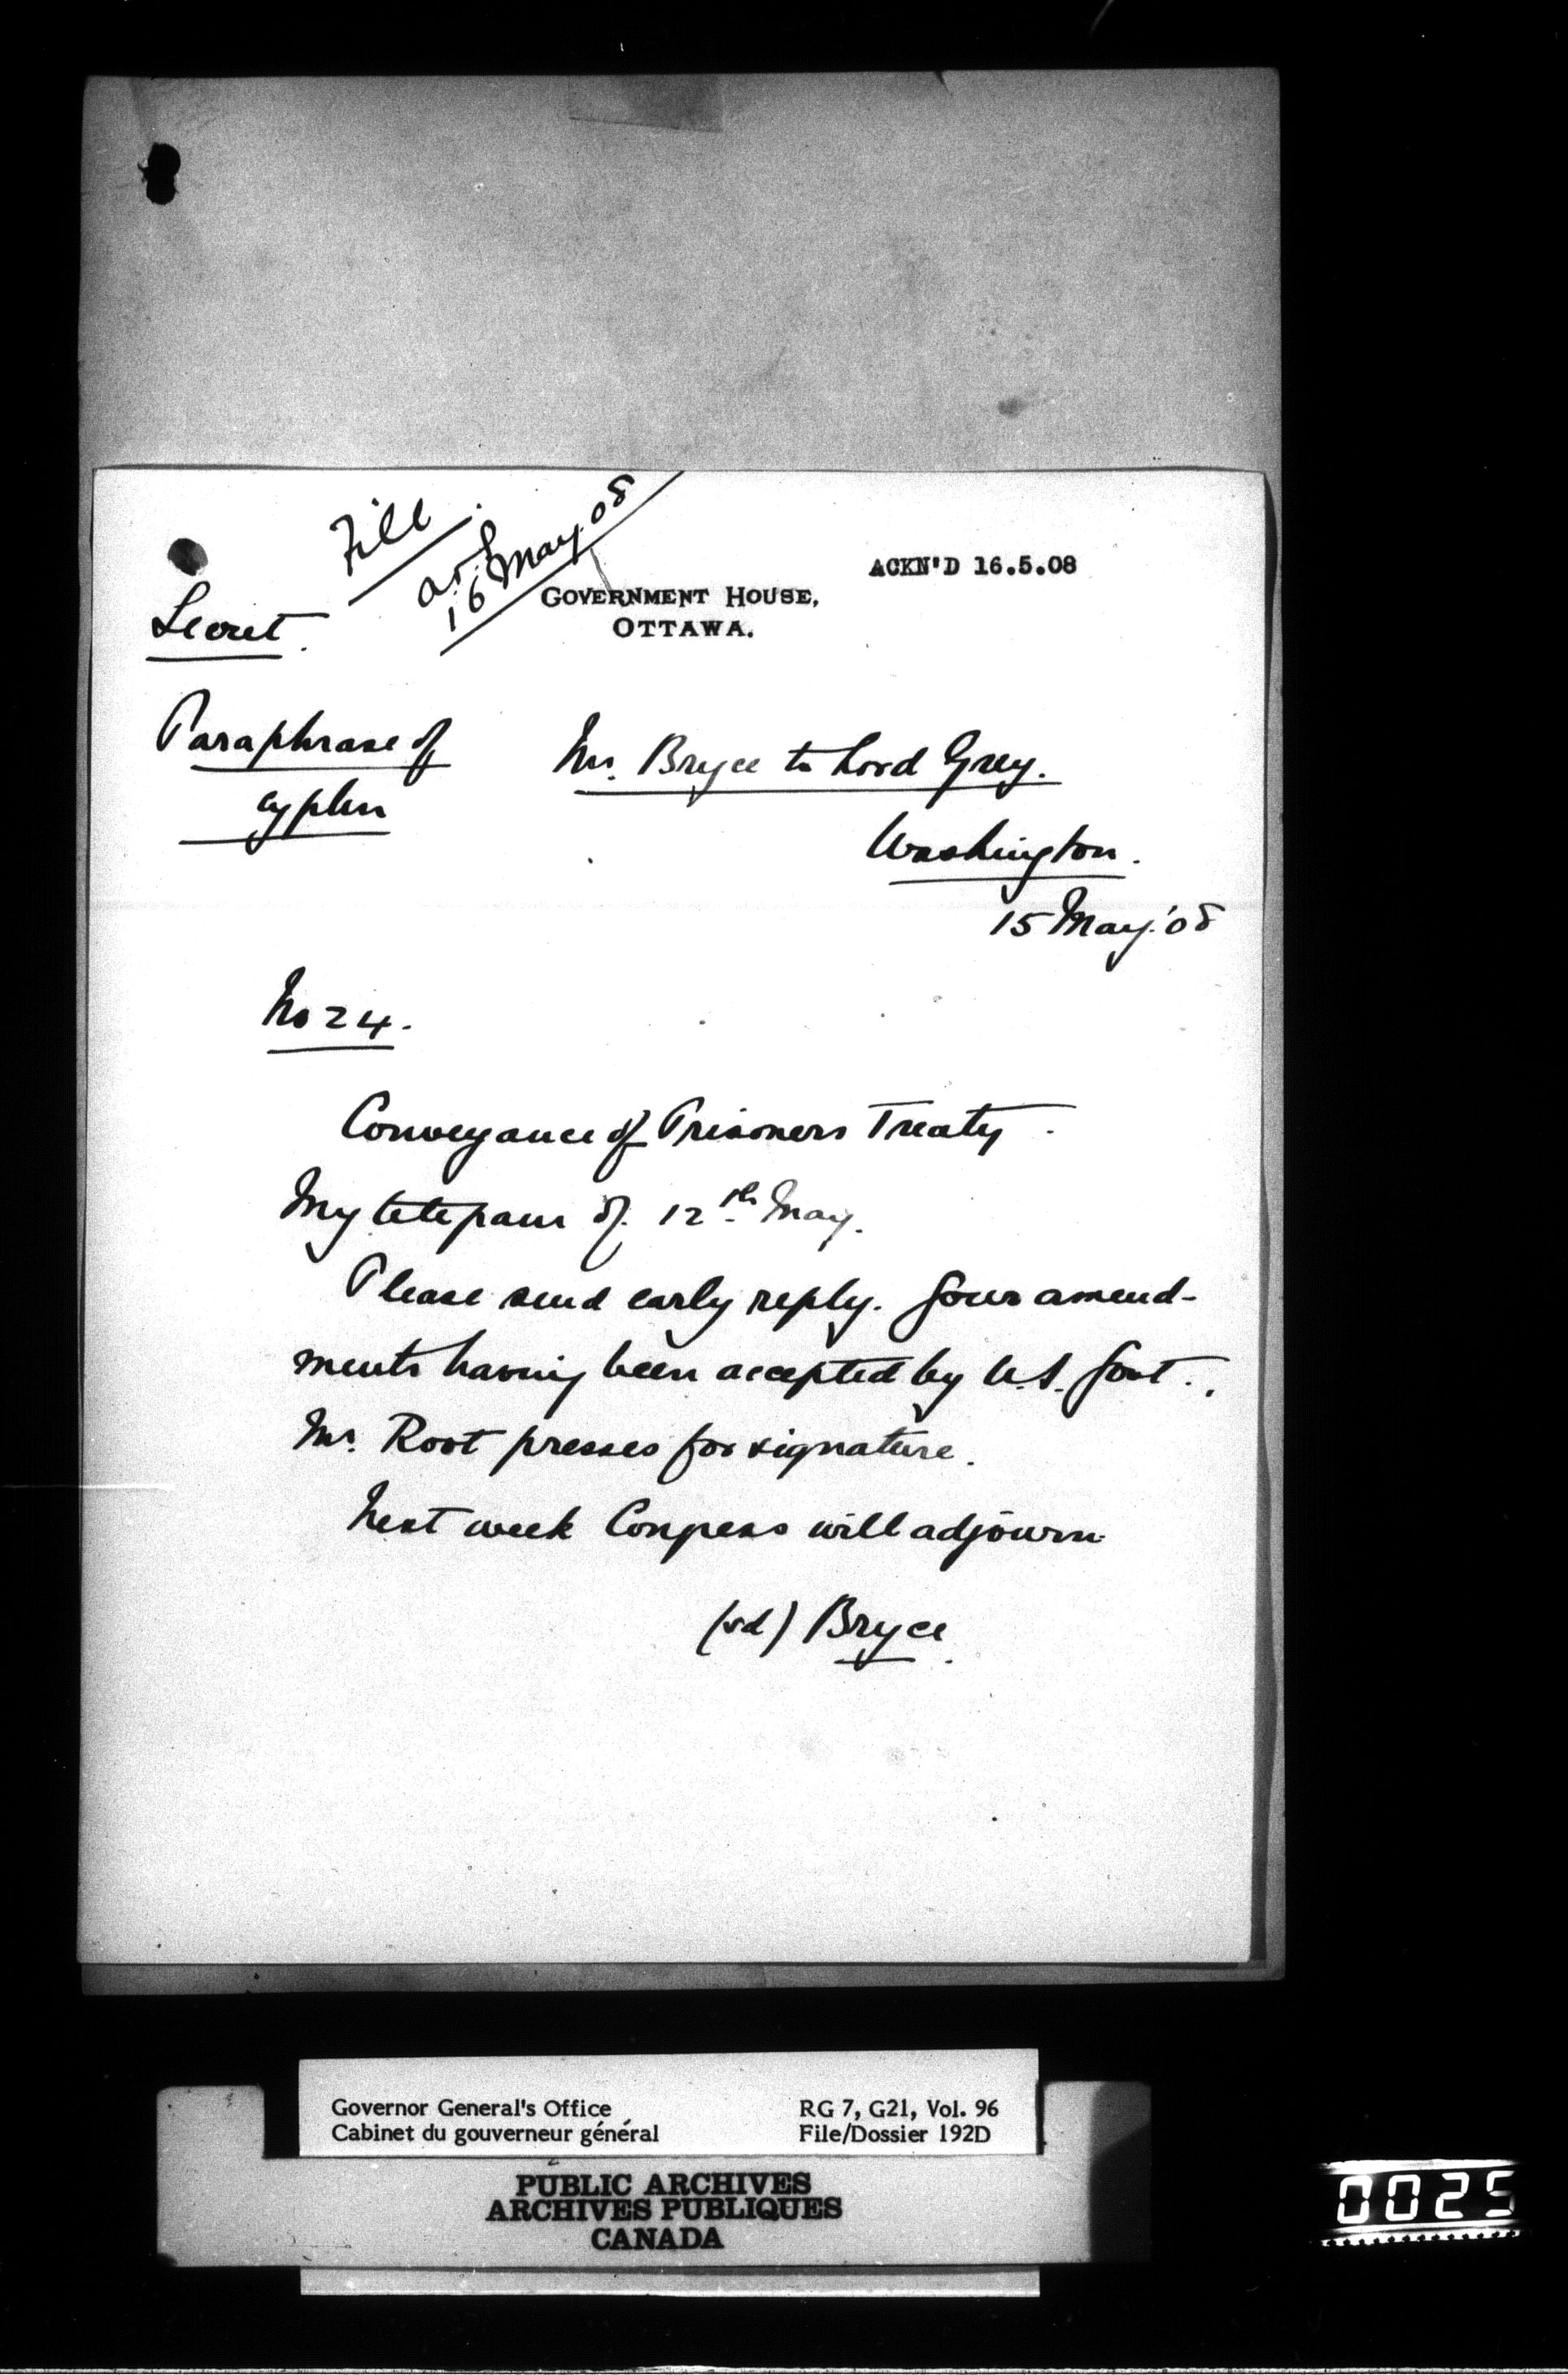 File.
16 May. 08
ACKN'D 16.5.08
GOVERNMENT HOUSE,
OTTAWA.
Secret.
Paraphrase of
cypher
Mr. Bryce to Lord Grey.
Washington.
15 May. '08
No 24.
Conveyance of Prisoners Treaty.
My telegram of 12th May.
Please send early reply. Your amend-
ments having been accepted by U.S. Govt.,
Mr. Root presses for signature.
Next week Congress will adjourn
(sd) Bryce.
Governor General's Office
Cabinet du gouverneur général
RG 7, G21, Vol. 96
File/Dossier 192D
PUBLIC ARCHIVES
ARCHIVES PUBLIQUES
CANADA
0025